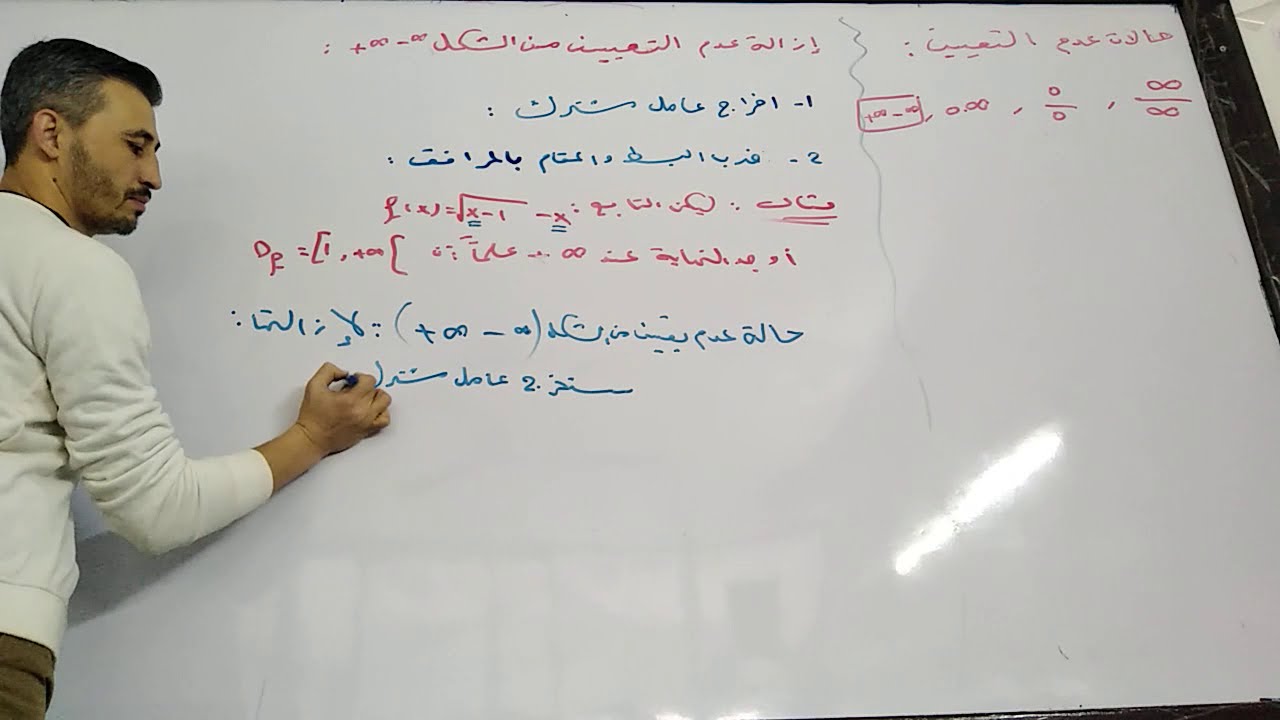 حالات عدم التعيين :
∞/∞ , 0/0 , 0.∞ , +∞-∞
إزالة عدم التعيين من الشكل +∞-∞ :
1- اخراج عامل مشترك :
2- ضرب البسط والمقام بالمرافق :
مثال : ليكن التابع : f(x)=√x-1 -x
أوجد النهاية عند +∞ علماً أن D_f=[1,+∞[
حالة عدم يقين من الشكل (+∞-∞) : لإزالتها :
سنخرج عامل مشتر